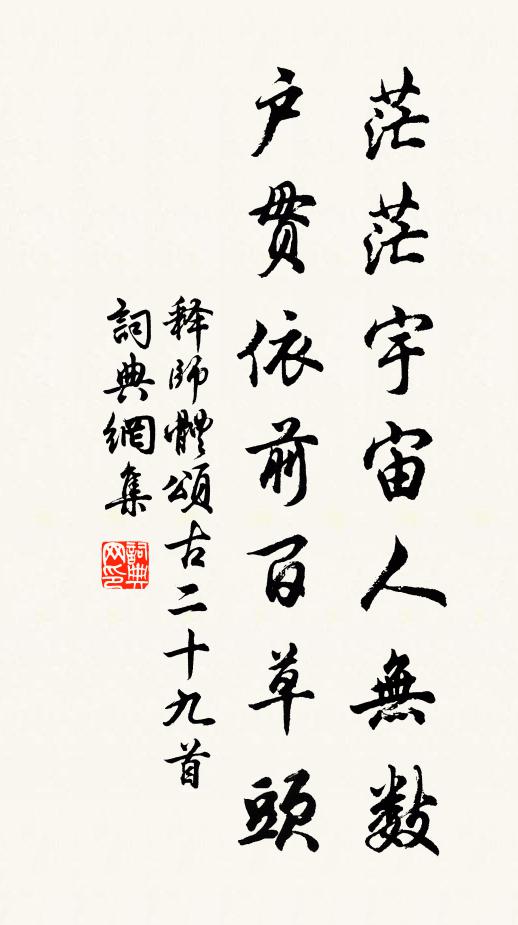 茫茫宇宙人無数
户贯依前百草頭
释師體頌古二十九首
詞典網集
詞典网印